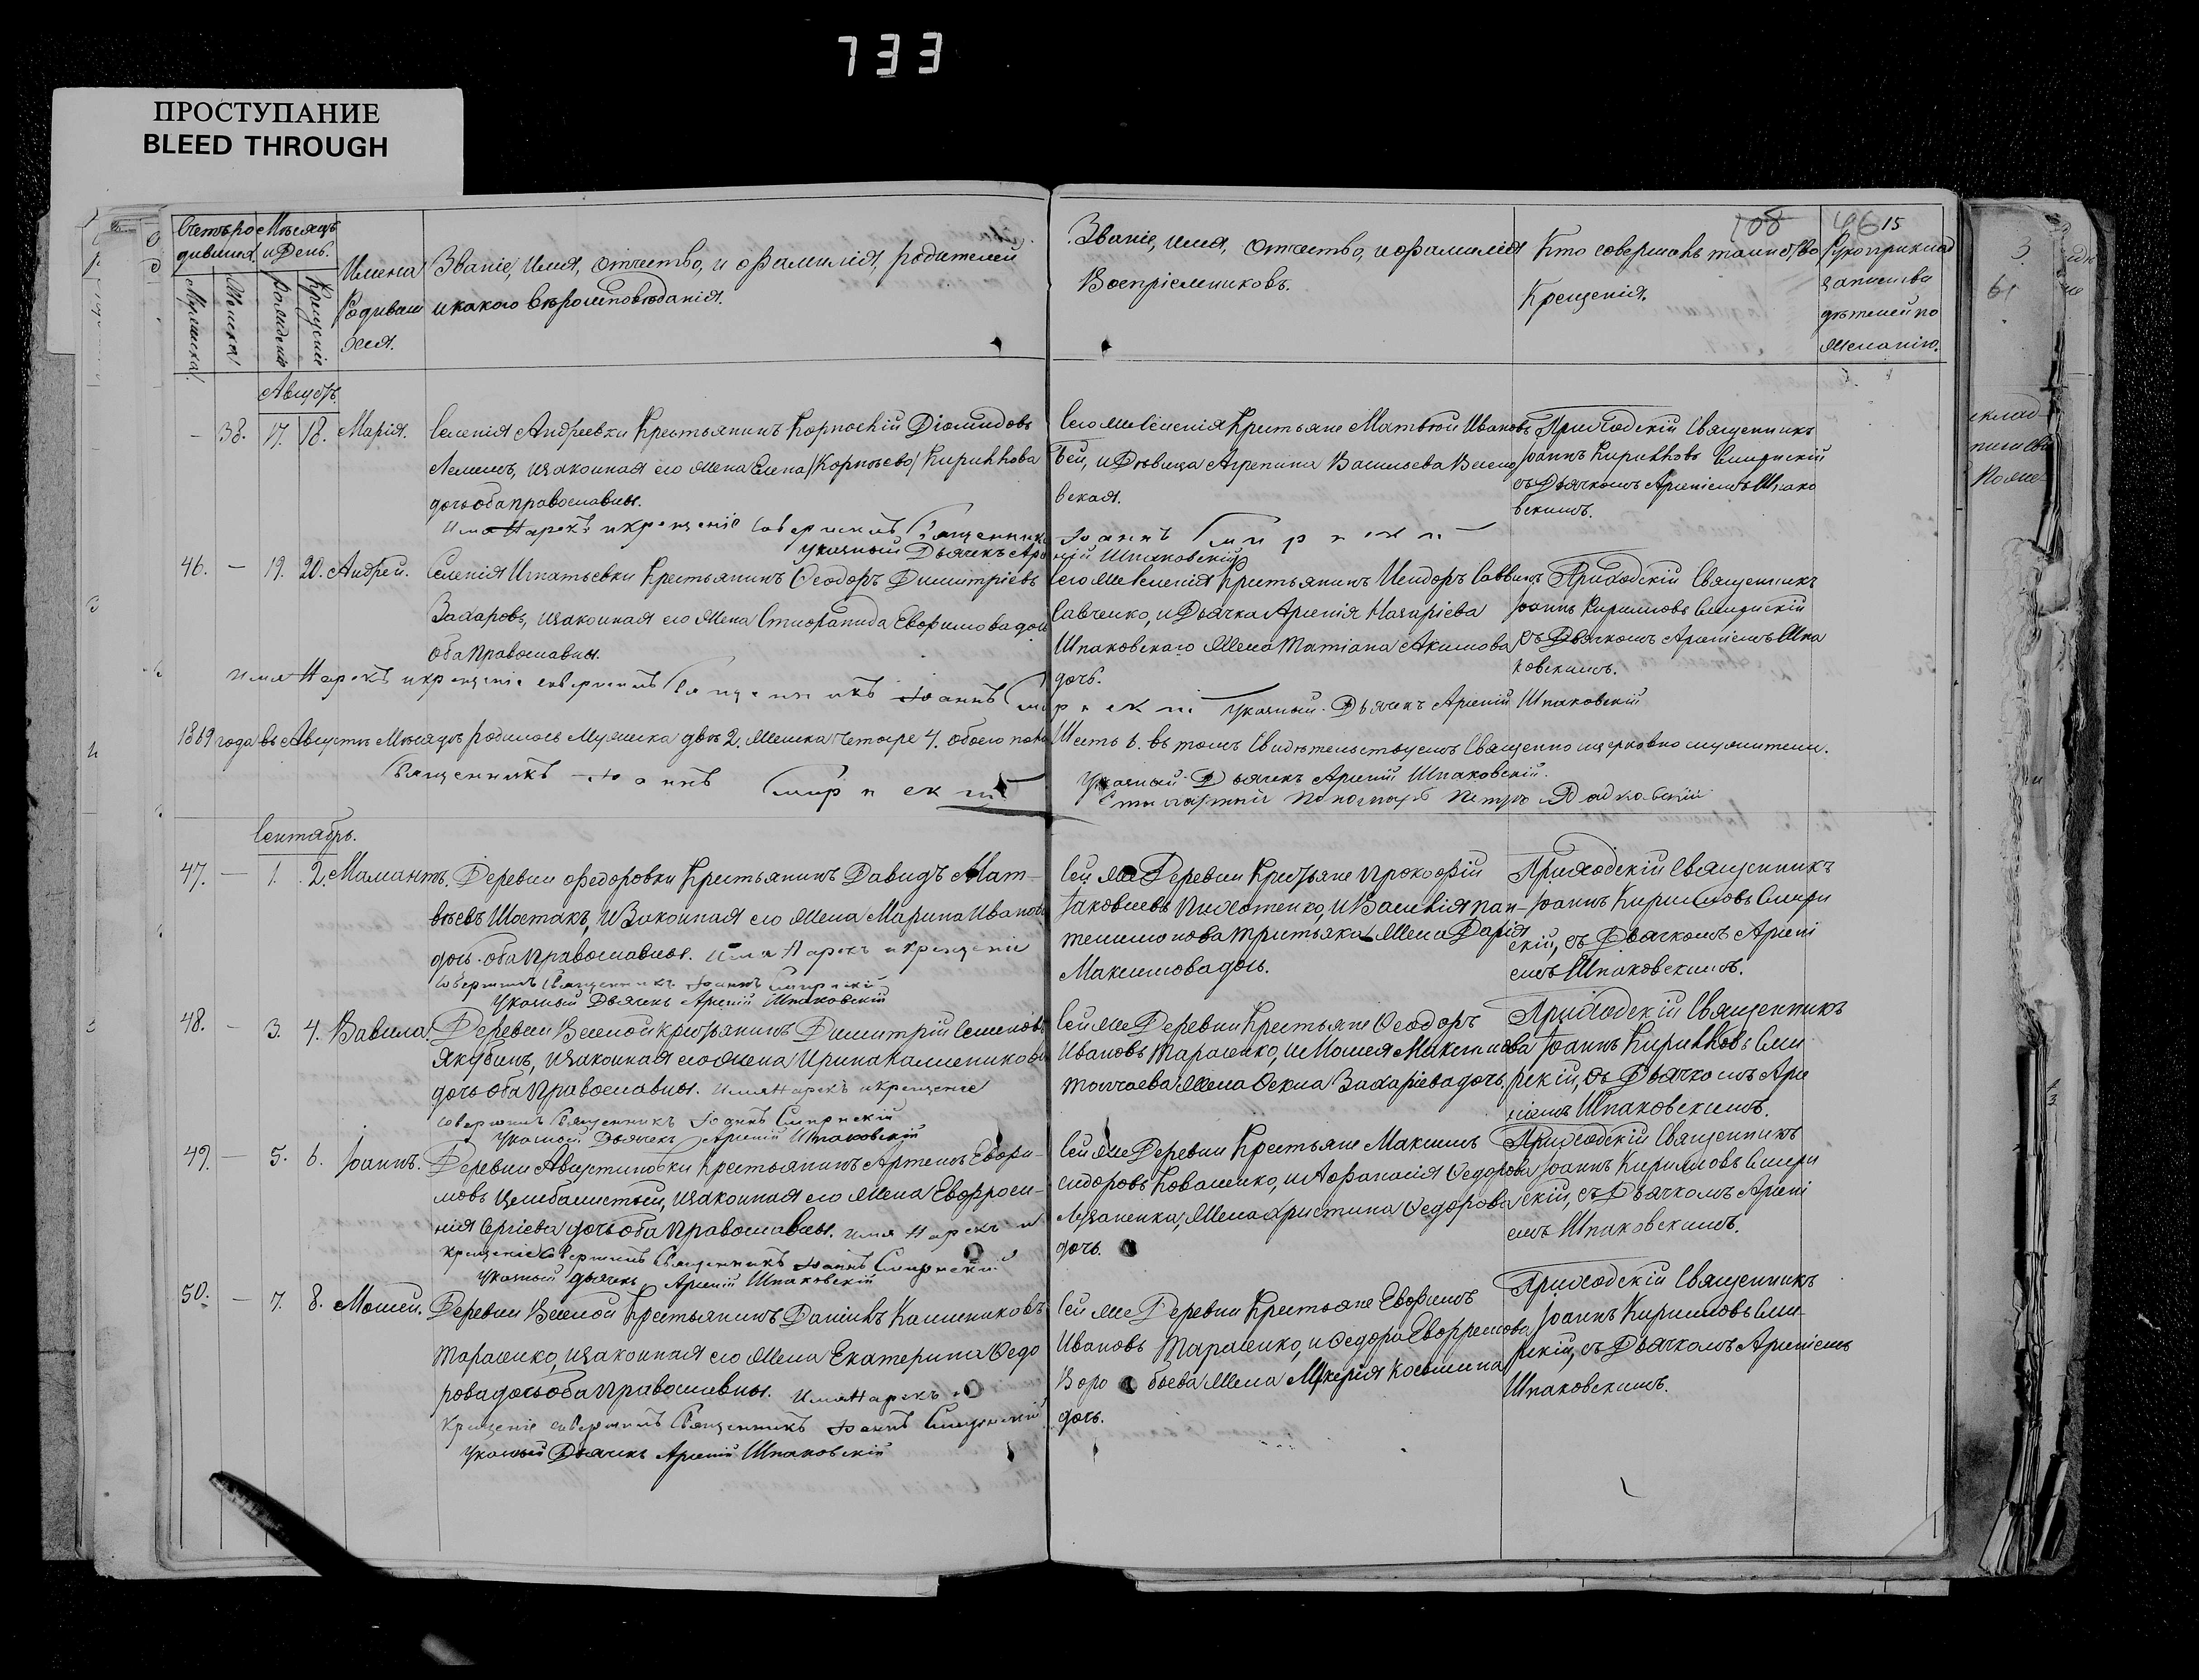 733
ПРОСТУПАНИЕ
BLEED THROUGH
108 66 15
Счетъ родившихся. Мѣсяцъ и День.
Мужеска. Женска. Рожденія Крещеніе
Имена Родившихся.
Званіе, Имя, отчество, и фамилія, родителей
и какого вѣроисповѣданія.
Званіе, имя, отчество, и фамилія
Воспріемниковъ.
Кто совершалъ таинство
Крещенія.
Рукоприклад
записьва
дѣтелей по
желанію.
Августъ.
– 38. 17. 18. Марія.
Селенія Андреевки Крестьянинъ Діомидовъ
Лемешъ, и законная его жена Елена /Корпѣева/ Кирилкова
дочь оба православны.
Имя Нарекъ и крещеніе совершилъ Священникъ Іоаннъ Смирнскій
указный Дьячекъ Арсеній Шпаковскій
Сего же Селенія Крестьяне Матвѣй Ивановъ
Бей, и Дѣвица Агрепина Васильева
вская.
Приходскій Священникъ
Іоаннъ Кирилловъ Смирнскій
съ Дьячкомъ Арсеніемъ Шпако
вскимъ.
46. – 19. 20. Андрей.
Селенія Игнатьевки Крестьянинъ Ѳеодоръ Димитріевъ
Захаровъ, и законная его жена Стефанида Евфимова дочь
оба православны.
Имя Нарекъ и крещеніе совершилъ Священникъ Іоаннъ Смирнскій указный Дьячекъ Арсеній Шпаковскій
Сего же Селенія Крестьянинъ Исидоръ Саввинъ
Савченко, и Дьячка Арсенія Назаріева
Шпаковскаго жена Татіана Акимова
дочь.
Приходскій Священникъ
Іоаннъ Кирилловъ Смирнскій
съ Дьячкомъ Арсеніемъ Шпа
ковскимъ.
1869 года въ Августѣ Мѣсяцѣ родилось Мужеска двѣ 2. Женска четыре 4. обоего пола Шесть 6. въ томъ Свидѣтельствуемъ Священно церковно служители.
Священникъ Іоаннъ Смирнскій
Указный Дьячекъ Арсеній Шпаковскій.
Пономарь Петръ
Сентябрь.
47. – 1. 2. Мамантъ.
Деревни Федоровки Крестьянинъ Давидъ Мат-
вѣевъ Шостакъ, и Законная его жена Марина Иванова
дочь оба православны. Имя Нарекъ и крещеніе
совершилъ Священникъ Іоаннъ Смирнскій
Указный Дьячекъ Арсеній Шпаковскій
Сей же Деревни Крестьяне Прокофій
Іаковлевъ Пихотенко, и Василія Пан-
телимонова Третьяка жена Дарія
Максимова дочь.
Приходскій Священникъ
Іоаннъ Кирилловъ Смирн
скій, съ Дьячкомъ Арсені
емъ Шпаковскимъ.
48. – 3. 4. Вавила.
Деревни Веселой Крестьянинъ Димитрій Семеновъ
Якубинъ, и законная его жена Ирина Калиникова
дочь оба Православны. Имя Нарекъ и крещеніе
совершилъ Священникъ Іоаннъ Смирнскій
Указной Дьячекъ Арсеній Шпаковскій
Сей же Деревни Крестьяне Ѳеодоръ
Ивановъ Тарасенко, и Моисея Максимова
Толчаева жена Ѳекла Захаріева дочь.
Приходскій Священникъ
Іоаннъ Кирилковъ Сми
рнскій, съ Дьячкомъ Арсе
ніемъ Шпаковскимъ.
49. – 5. 6. Іоаннъ.
Деревни Августиновки Крестьянинъ Артемъ Евфи-
мовъ Цимбалистый, и законная его жена Евфроси-
нія Сергіева дочь оба Православны. Имя Нарекъ и
крещеніе совершилъ Священникъ Іоаннъ Смирнскій
Указный дьячекъ Арсеній Шпаковскій
Сей же Деревни Крестьяне Максимъ
Сидоровъ Коваленко, и Афанасія Ѳедорова
Лузаненка, жена Христина Ѳедорова
дочь.
Приходскій Священникъ
Іоаннъ Кирилловъ Смирн
скій, съ Дьячкомъ Арсені
емъ Шпаковскимъ.
50. – 7. 8. Моисей.
Деревни Веселой Крестьянинъ Даніилъ Калиниковъ
Тарасенко, и законная его жена Екатерина Ѳедо
рова дочь оба Православны. Имя Нарекъ и
Крещеніе совершилъ Священникъ Іоаннъ Смирнскій
Указный Дьячекъ Арсеній Шпаковскій
Сей же Деревни Крестьяне Евфимъ
Ивановъ Тарасенко, и Ѳедора Евфремова
Воробьева жена Косьмина
дочь.
Приходскій Священникъ
Іоаннъ Кирилловъ Сми-
рнскій, съ Дьячкомъ Арсеніемъ
Шпаковскимъ.